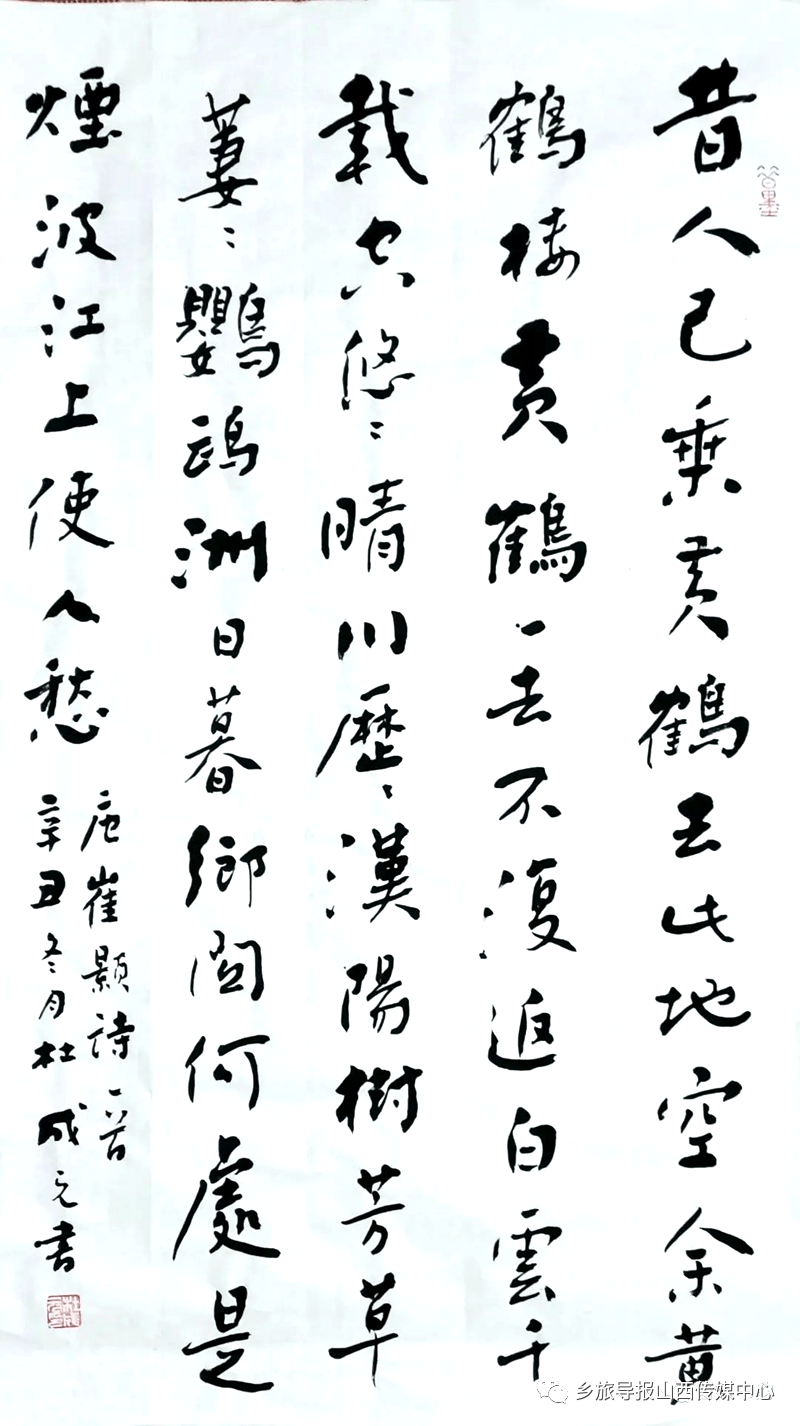 昔人已乘黄鶴去此地空余黄
鶴楼黄鶴一去不復返白雲千
載空悠〻晴川歷〻漢陽樹芳草
萋〻鸚鵡洲日暮鄉関何處是
煙波江上使人愁
唐崔顥詩一首
辛丑冬月杜成元書
乡旅导报山西传媒中心